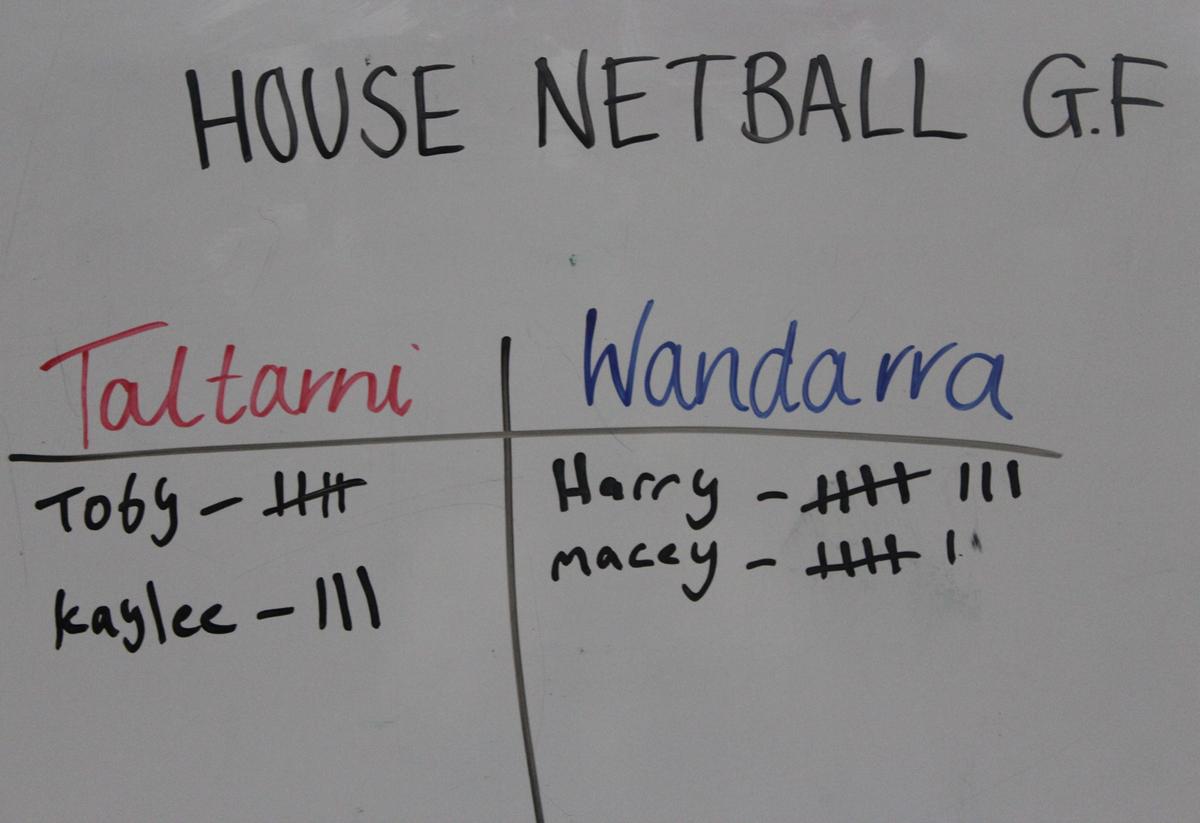 HOUSE NETBALL G.F
Taltarni
Wandarra
Toby - 卌
Kaylee - III
Harry - 卌 III
macey - 卌 I